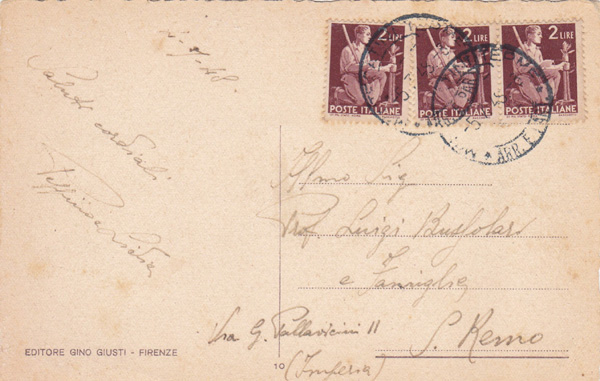 2-7-48.
Saluti cordiali
2 LIRE
POSTE ITALIANE
2 LIRE
POSTE ITALIANE
2 LIRE
POSTE ITALIANE
ARR. E
Almo Sig
Prof Luigi
e Famiglia
Via G. Pallavicini 11
S. Remo
(Imperia)
EDITORE GINO GIUSTI - FIRENZE
10